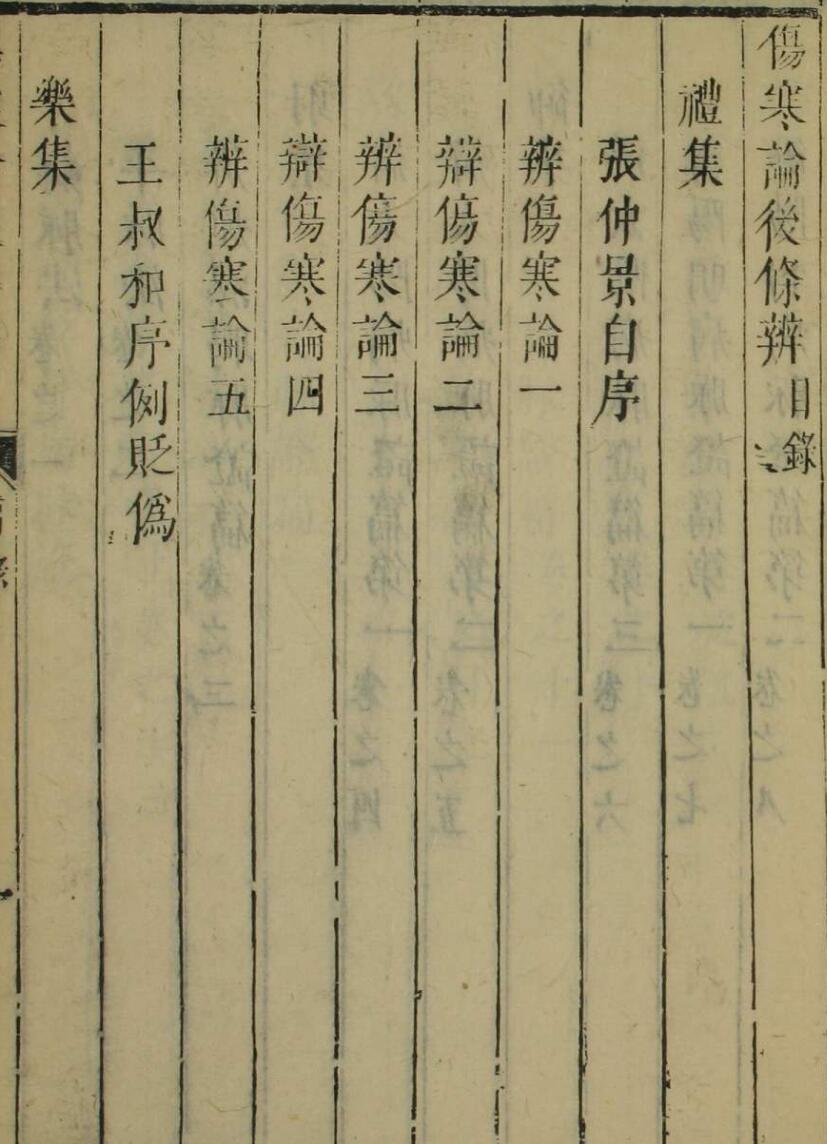 傷寒論後條辨目錄
禮集
張仲景自序
辨傷寒論一
辯傷寒論二
辨傷寒論三
辯傷寒論四
辨傷寒論五
王叔和序例貶僞
樂集